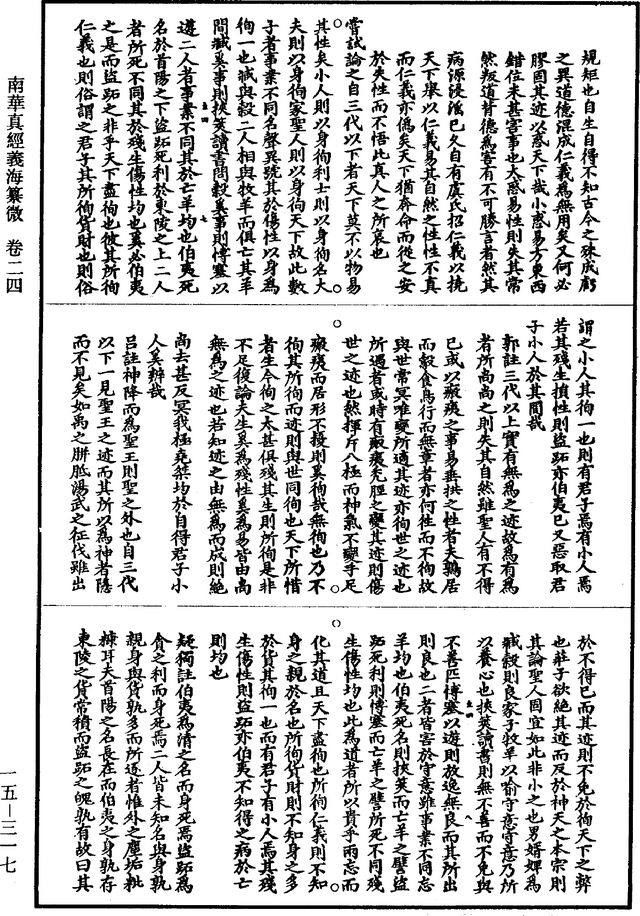 南華真經義海纂微 卷二四
一五—三一七
規矩也自生自得不知古今之殊成虧
之異道德混成仁義為無用矣又何必
膠固其迹以惑天下哉小惑易方東西
錯位未甚害事也大惑易性則失其常
然叛道背德為害有不可勝言者然其
病源浸淫已久自有虞氏招仁義以撓
天下舉以仁義易其自然之性性不真
而仁義亦偽矣天下猶奔命而從之安
於失性而不悟此真人之所哀也
嘗試論之自三代以下者天下莫不以物易
其性矣小人則以身徇利士則以身徇名大
夫則以身徇家聖人則以身徇天下故此數
子者事業不同名聲異號其於傷性以身為
徇一也臧與穀二人相與牧羊而俱亡其羊
問臧奚事則挾筴讀書問穀奚事則博塞以
遊二人者事業不同其於亡羊均也伯夷死
名於首陽之下盜跖死利於東陵之上二人
者所死不同其於殘生傷性均也奚必伯夷
之是而盜跖之非乎天下盡徇也彼其所徇
仁義也則俗謂之君子其所徇貨財也則俗
謂之小人其徇一也則有君子焉有小人焉
若其殘生損性則盜跖亦伯夷已又惡取君
子小人於其間哉
郭註三代以上實有無為之迹故為有為
者所尚尚之則失其自然雖聖人有不得
已或以瘢痍之事易垂拱之性者夫鶉居
而鷇食鳥行而無章者亦何往而不徇故
與世常冥唯變所適其迹亦徇世之迹也
所遇者或時有瘢痍禿脛之變其迹則傷
世之迹也然揮斥八極而神氣不變手足
瘢痍而居形不擾則奚徇哉無徇也乃不
徇其所徇而迹則與世同徇也天下所惜
者生今徇之太甚俱殘其生則所徇是非
不足復論夫生奚為殘性奚為易皆由尚
無為之迹也若知迹之由無為而成則絕
尚去甚反冥我極堯桀均於自得君子小
人奚辨哉
呂註神降而為聖王則聖之外也自三代
以下一見聖王之迹而其所以為神者隱
而不見矣如禹之胼胝湯武之征伐雖出
於不得已而其迹則不免於徇天下之弊
也莊子欲絕其迹而反於神天之本宗則
其論聖人固宜如此非小之也男婿婢為
臧穀則良家子牧羊以喻守意守意乃所
以養心也挾筴讀書則無不善而不免與
不善匹博塞以遊則放逸無良而其所出
則良也二者皆害於守意雖事業不同忘
羊均也伯夷死名則挾筴而亡羊之譬盜
跖死利則博塞而亡羊之譬所死不同殘
生傷性均也此為道者所以貴乎兩忘而
化其道且天下盡徇也所徇仁義則不知
身之親於名也所徇貨財則不知身之多
於貨其徇一也而有君子有小人焉其殘
生傷性則盜跖亦伯夷不知得之病於亡
則均也
疑獨註伯夷為清之名而身死焉盜跖為
貪之利而身死焉二人皆未知名與身孰
親身與貨孰多而所逐者惟外之塵垢粃
糠耳夫首陽之名長在而伯夷之身孰存
東陵之貨常積而盜跖之魄孰有故曰其